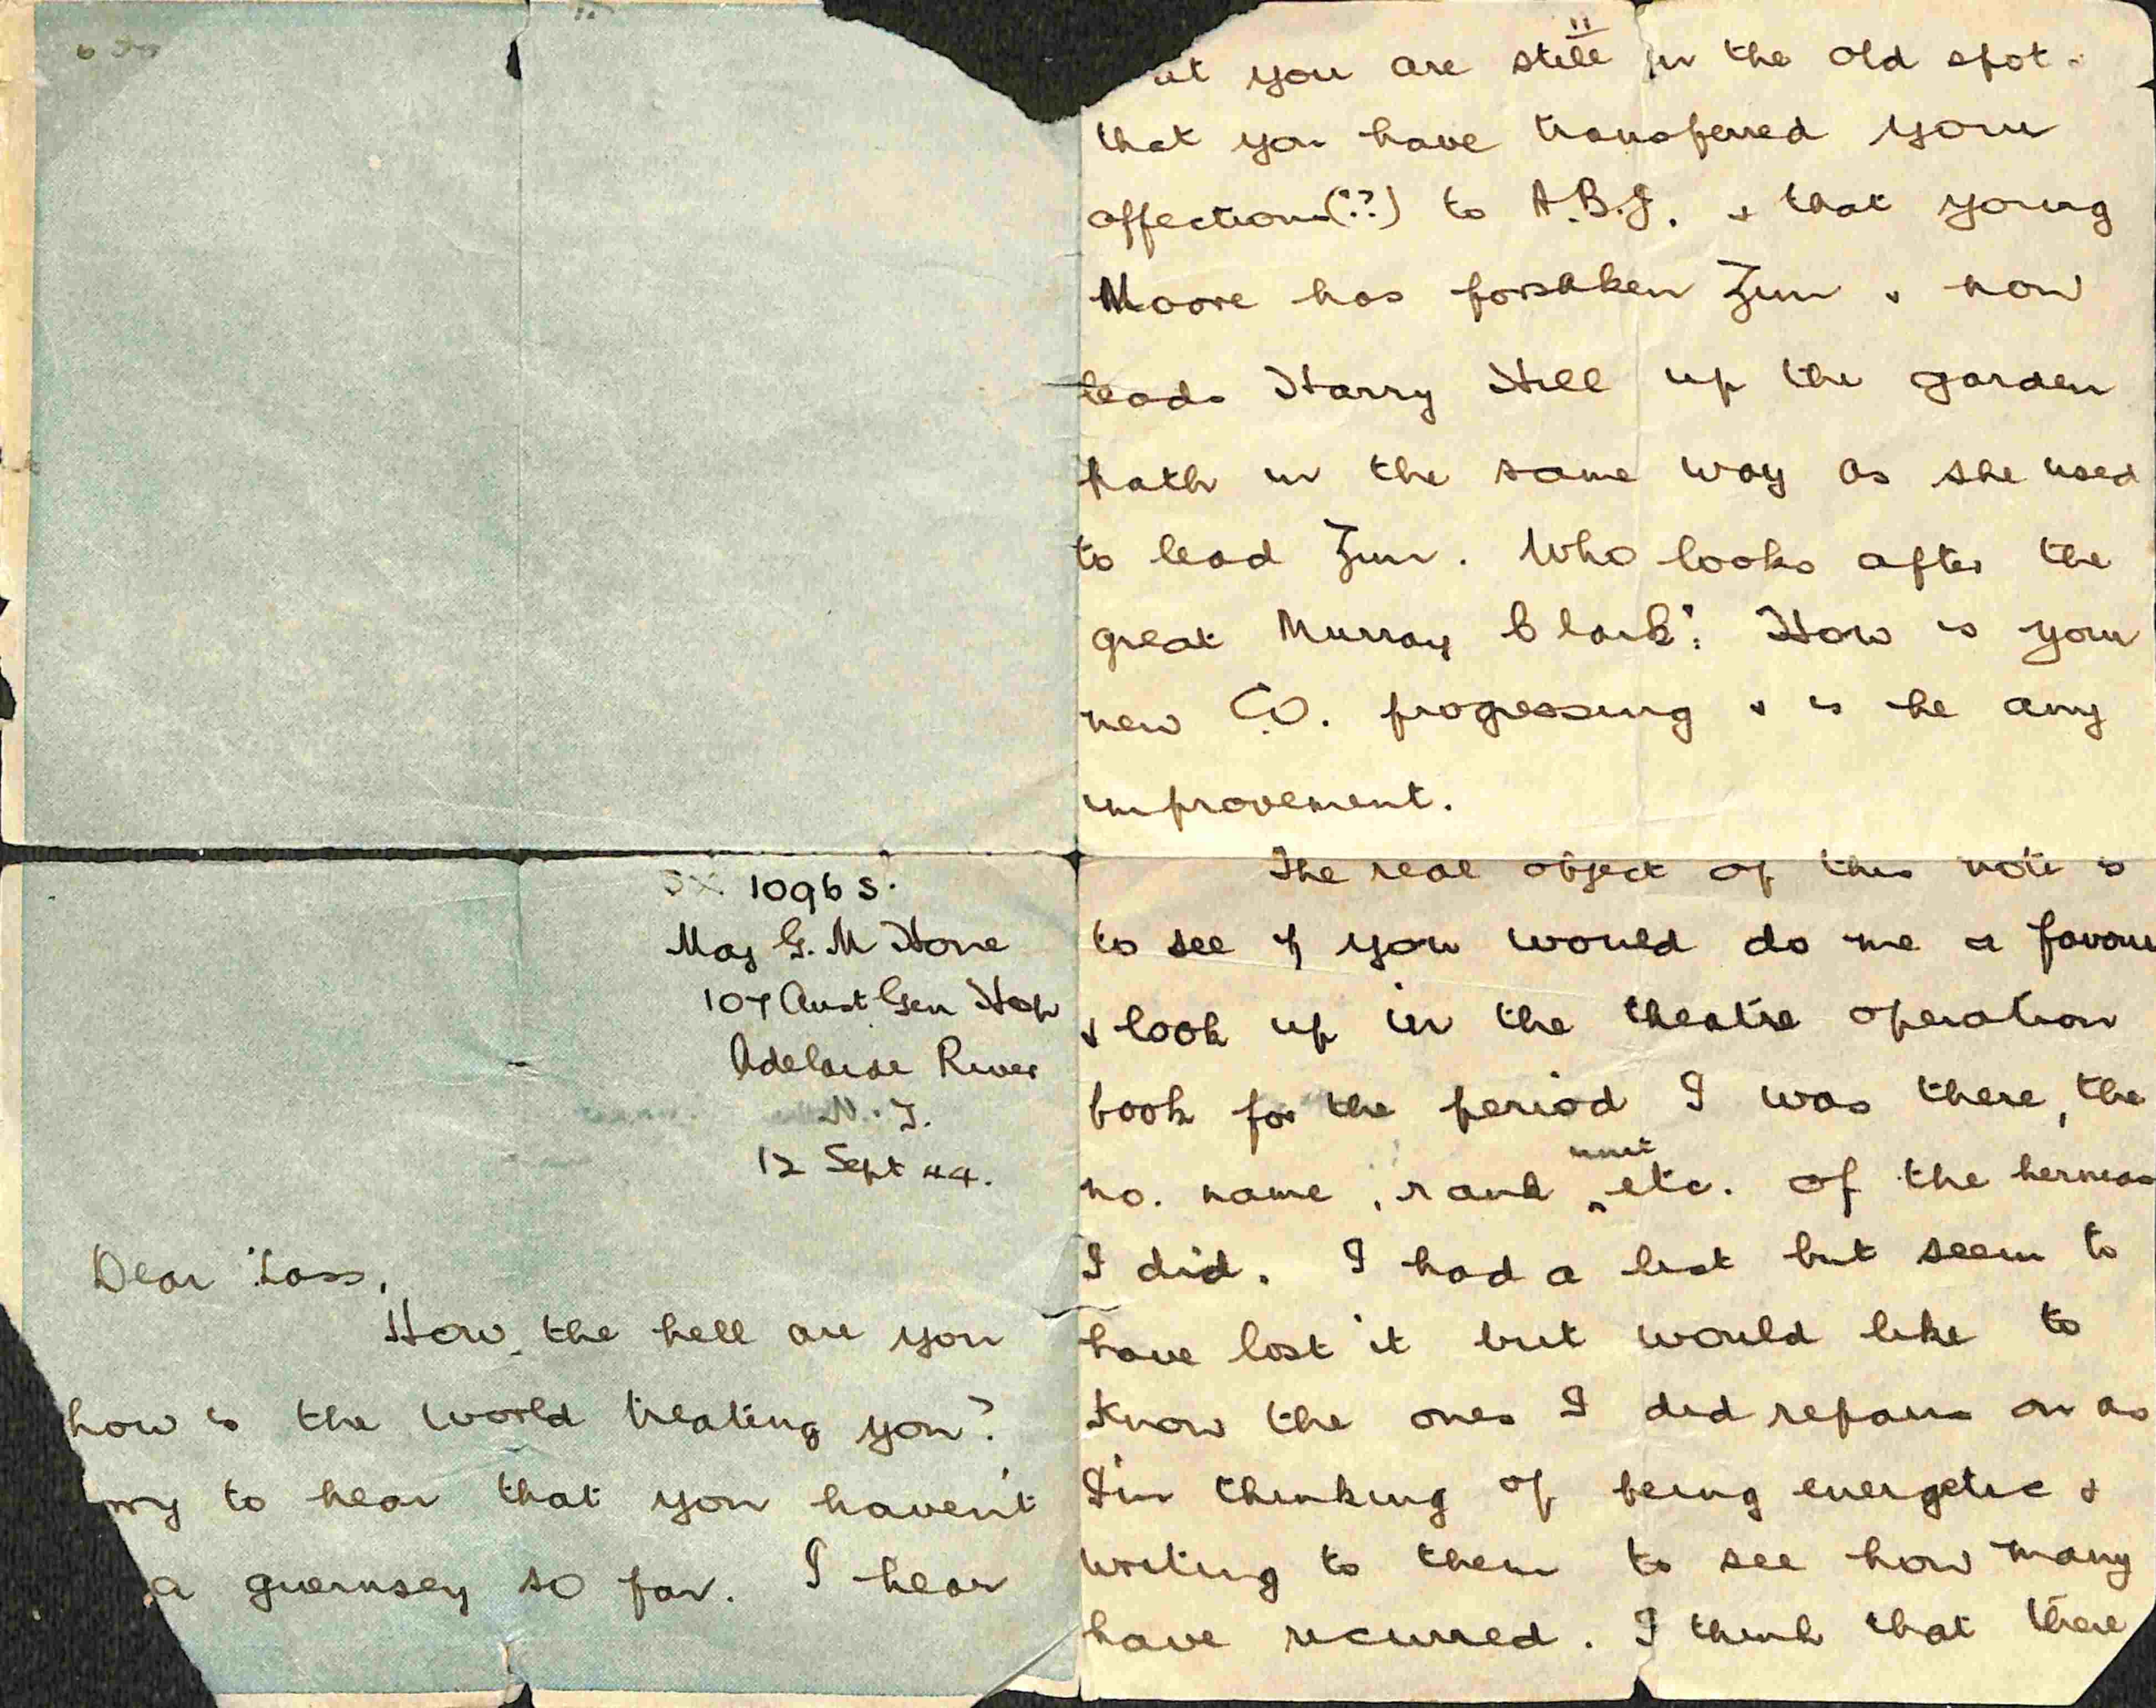 SX 10965.
Maj G. M Hone
107 Aust Gen Hosp
Adelaide River
N.T.
12 Sept 44.
Dear Lass,
How the hell are you
how is the world treating you?
to hear that you haven't
a guernsey so far. I hear
you are still in the old spot.
that you have transferred your
affections(??) to A.B.J. & that young
Moore has forsaken Jim & now
leads Harry Hill up the garden
path in the same way as she used
to lead Jim. Who looks after the
great Murray Clark? How is your
new CO. progressing & is he any
improvement.
The real object of this note is
to see if you would do me a favour
& look up in the theatre operation
book for the period I was there, the
no. name, rank ^unit etc. of the hernias
I did. I had a list but seem to
have lost it but would like to
know the ones I did repairs on as
I'm thinking of being energetic &
writing to them to see how many
have recurred. I think that there